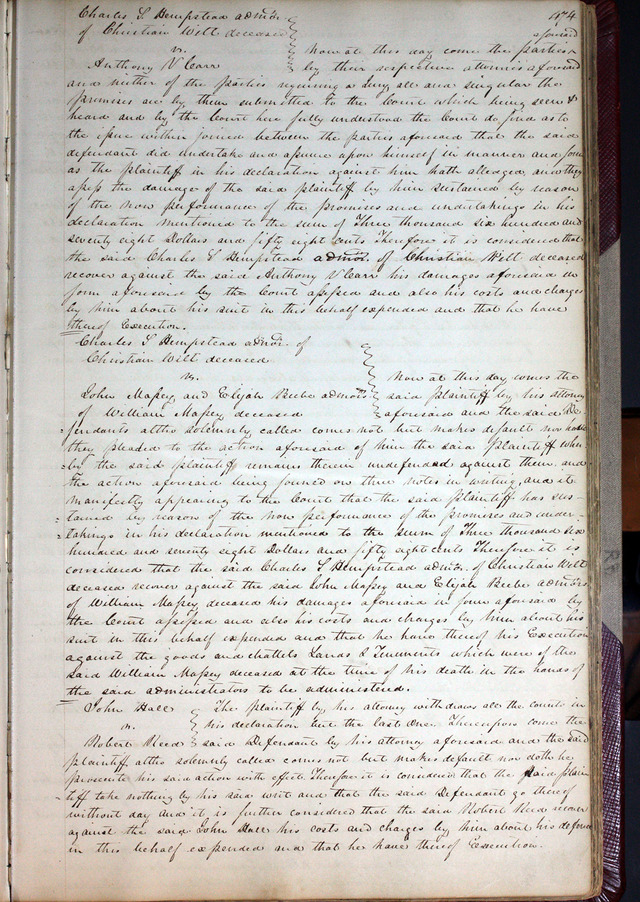 174
Charles S Hempstead admr.
of Christian Wilt deceased
vs.
Anthony V Carr
Now at this day come the parties aforesaid
by their respective attornies aforesaid
and neither of the parties requiring a Jury all and singular the
premises are by them submitted to the Court which being seen &
heard and by the Court here fully understood the Court do find as to
the issue within joined between the parties aforesaid that the said
defendant did undertake and assume upon himself in manner and form
as the plaintiff in his declaration against him hath alledged, and they
assess the damage of the said plaintiff by him sustained by reason
of the non performance of the promises and undertakings in his
declaration mentioned to the sum of Three thousand six hundred and
seventy eight Dollars and fifty eight cents Therefore it is considered that
the said Charles S Hempstead admor. of Christian Wilt deceased
recover against the said Anthony V Carr his damages aforesaid in
form aforesaid by the Court assessed and also his costs and charges
by him about his suit in this behalf expended and that he have
thereof Execution.
Charles S Hempstead admr. of
Christian Wilt deceased
vs.
John Massey and Elijah Beebe admors
of William Massey deceased
Now at this day comes the
said plaintiff by his attorney
aforesaid and the said De-
fendants altho solemnly called comes not but makes default nor hath
they pleaded to the action aforesaid of him the said Plaintiff where
by the said plaintiff remains therein undefended against them and
the action aforesaid being founded on three notes in writing and it
manifestly appearing to the Court that the said plaintiff has sus-
tained by reason of the non performance of the promises and under-
takings in his declaration mentioned to the sum of Three thousand six
hundred and seventy eight Dollars and fifty eight cents Therefore it is
considered that the said Charles S Hempstead admor. of Christian Wilt
deceased recover against the said John Massey and Elijah Beebe admors
of William Massey deceased his damages aforesaid in form aforesaid by
the Court assessed and also his costs and charges by him about his
suit in this behalf expended and that he have thereof his Execution
against the goods and chattels Lands & Tenements which were of the
said William Massey deceased at the time of his death in the hands of
the said administrators to be administered.
John Hall
vs.
Robert Reed
The plaintiff by his attorney withdraws all the Counts in
his declaration but the last one. Thereupon come the
said Defendant by his attorney aforesaid and the said
plaintiff altho solemnly called comes not but makes default nor doth he
prosecute his said action with effect. Therefore it is considered that the said plain
tiff take nothing by his said writ and that the said Defendant go thereof
without day and it is further considered that the said Robert Reed recover
against the said John Hall his costs and charges by him about his defence
in this behalf expended and that he have thereof Execution.